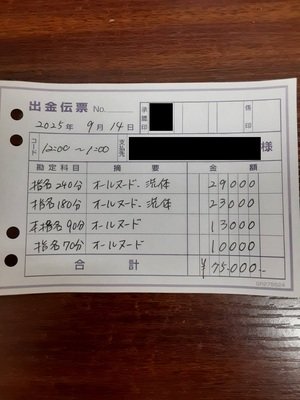 出金伝票 No.
承認印 係印
2025年 9月 14日
コード 12:00〜1:00 支払先 様
勘定科目 摘要 金額
指名240分 オールヌード、流体 29000
指名180分 オールヌード、流体 23000
本指名90分 オールヌード 13000
指名70分 オールヌード 10000
合計 ¥75,000-